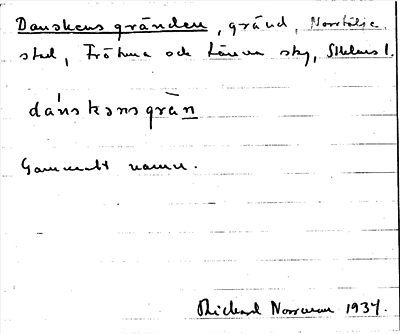 Danskens gränden, gränd, Norrtälje
stad, Frötuna och Länna skg, Sthlms l.
dánskənsgrä̀n
Gammalt namn.
Rickard Norrman 1934.